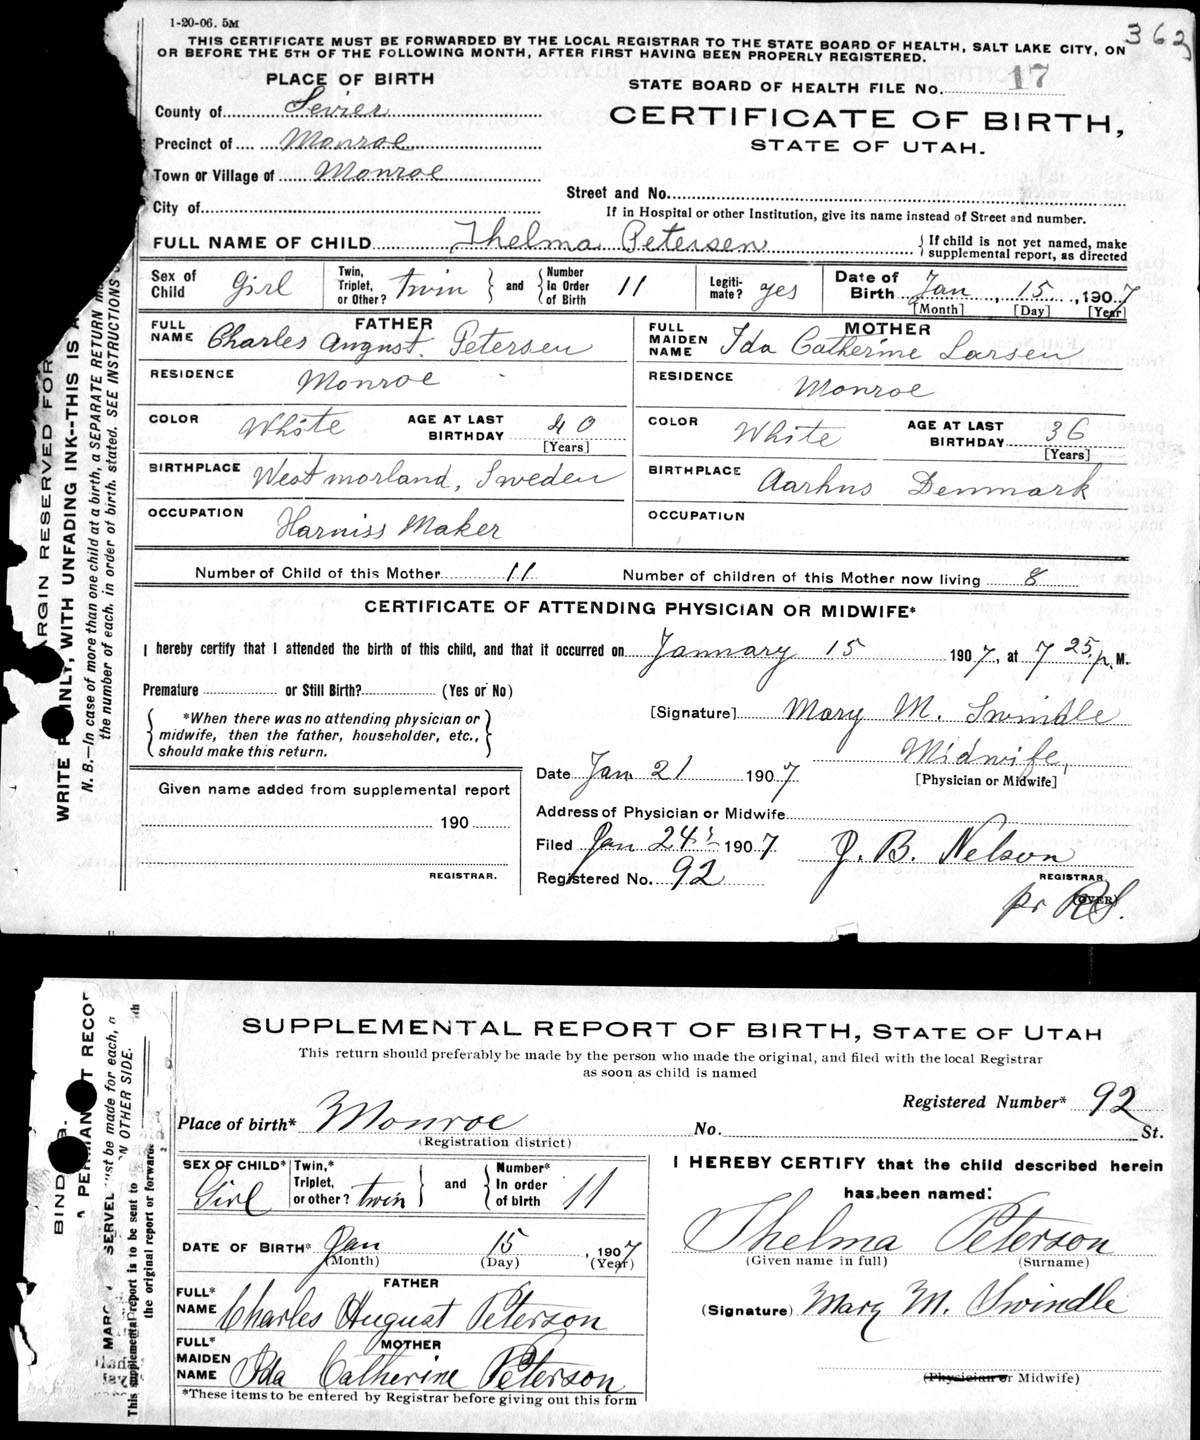 1-20-06. 5M
362
THIS CERTIFICATE MUST BE FORWARDED BY THE LOCAL REGISTRAR TO THE STATE BOARD OF HEALTH, SALT LAKE CITY, ON
OR BEFORE THE 5TH OF THE FOLLOWING MONTH, AFTER FIRST HAVING BEEN PROPERLY REGISTERED.
PLACE OF BIRTH
STATE BOARD OF HEALTH FILE No. 17
County of Sevier
CERTIFICATE OF BIRTH,
STATE OF UTAH.
Precinct of Monroe
Town or Village of Monroe
Street and No.
City of
If in Hospital or other Institution, give its name instead of Street and number.
FULL NAME OF CHILD Thelma Petersen { If child is not yet named, make supplemental report, as directed
Sex of Child Girl Twin, Triplet, or Other? twin } and { Number In Order of Birth 11 Legiti- mate? yes Date of Birth Jan, 15, 1907
[Month] [Day] [Year]
FATHER
FULL NAME Charles August. Petersen
MOTHER
FULL MAIDEN NAME Ida Catherine Larsen
RESIDENCE Monroe
RESIDENCE Monroe
COLOR White AGE AT LAST BIRTHDAY 40 [Years]
COLOR White AGE AT LAST BIRTHDAY 36 [Years]
BIRTHPLACE Westmorland, Sweden
BIRTHPLACE Aarhus Denmark
OCCUPATION Harniss Maker
OCCUPATION
Number of Child of this Mother 11 Number of children of this Mother now living 8
CERTIFICATE OF ATTENDING PHYSICIAN OR MIDWIFE*
I hereby certify that I attended the birth of this child, and that it occurred on January 15 1907, at 7 25 p. M.
Premature or Still Birth? (Yes or No)
{ *When there was no attending physician or
midwife, then the father, householder, etc.,
should make this return. }
[Signature] Mary M. Swindle
Midwife,
[Physician or Midwife]
Date Jan 21 1907
Given name added from supplemental report
190
REGISTRAR.
Address of Physician or Midwife
Filed Jan 24 1907 J. B. Nelson
REGISTRAR
Registered No. 92
(OVER)
pr RS.
ARGIN RESERVED FOR
WRITE PLAINLY, WITH UNFADING INK--THIS IS A
N. B.—In case of more than one child at a birth, a SEPARATE RETURN
the number of each, in order of birth, stated. SEE INSTRUCTIONS
SUPPLEMENTAL REPORT OF BIRTH, STATE OF UTAH
This return should preferably be made by the person who made the original, and filed with the local Registrar
as soon as child is named
Registered Number* 92
Place of birth* Monroe No. St.
(Registration district)
SEX OF CHILD* Girl Twin,* Triplet, or other? twin } and { Number* In order of birth 11
DATE OF BIRTH* Jan 15, 1907
(Month) (Day) (Year)
FATHER
FULL* NAME Charles August Peterson
MOTHER
FULL* MAIDEN NAME Ida Catherine Peterson
*These items to be entered by Registrar before giving out this form
I HEREBY CERTIFY that the child described herein
has been named:
Thelma Peterson
(Given name in full) (Surname)
(Signature) Mary M. Swindle
(Physician or Midwife)
BIND
A PERMANENT RECOR
SERVE
must be made for each,
N OTHER SIDE.
This supplemental report is to be sent to
the original report or forward